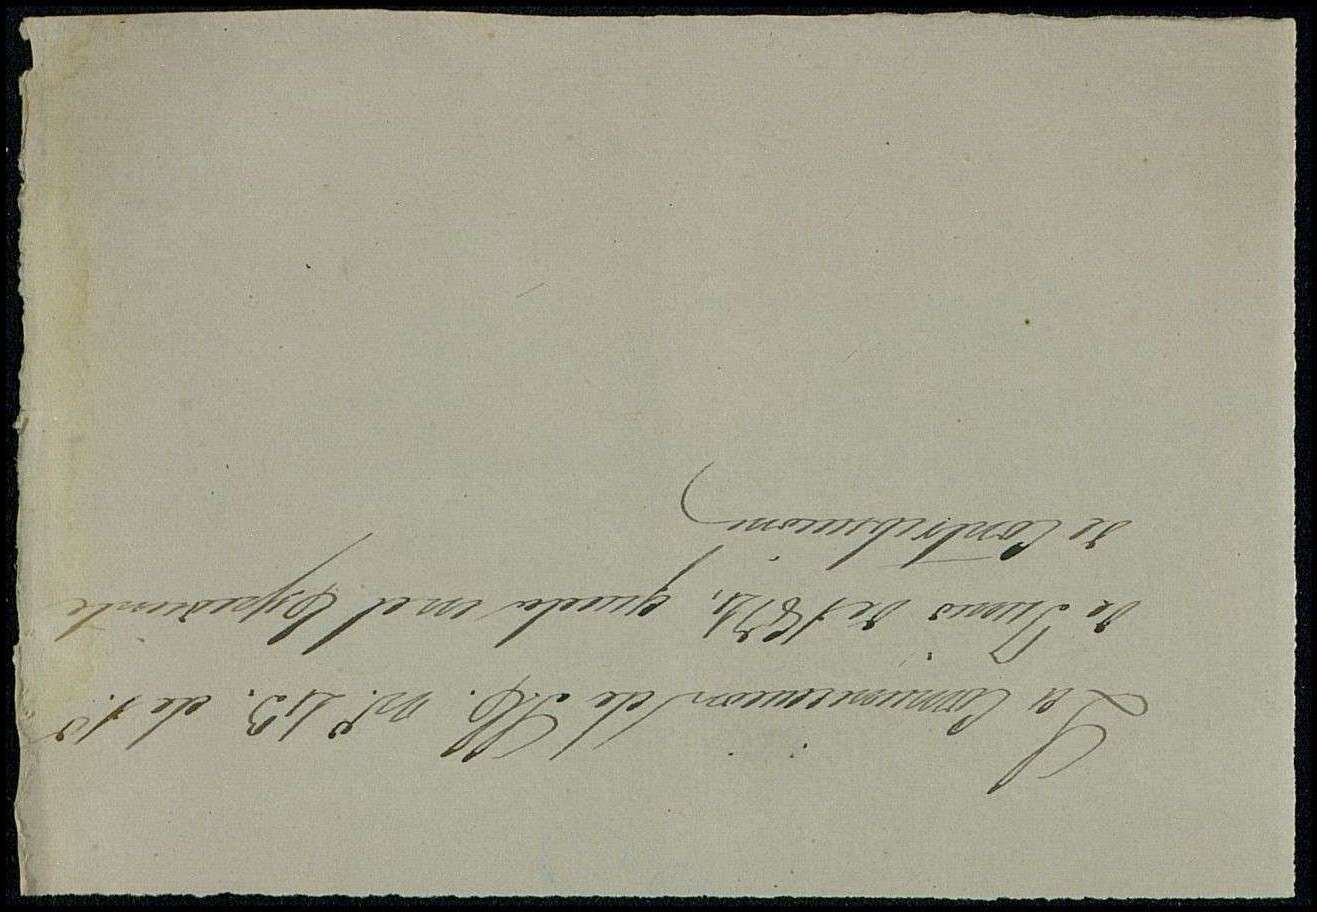 La Comunicacion de n.º 43. de 1.º
de Junio de 1874, queda en el Expediente
de Contribucion